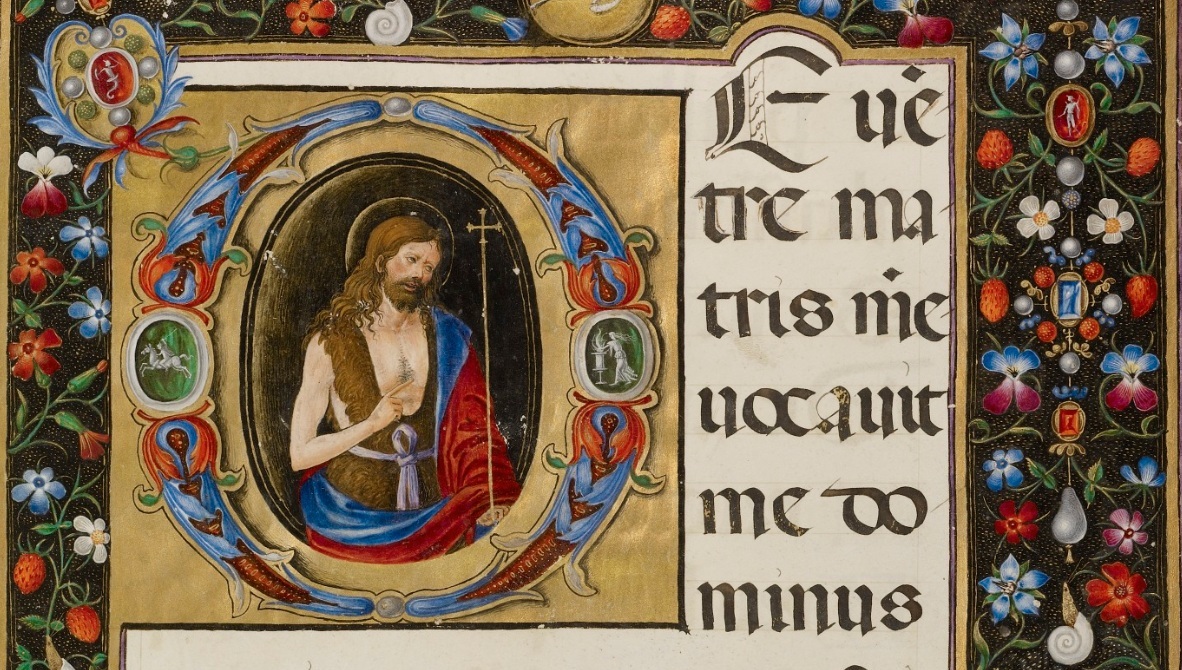 DE uē
tre ma
tris m̄e
uocauit
me do
minus